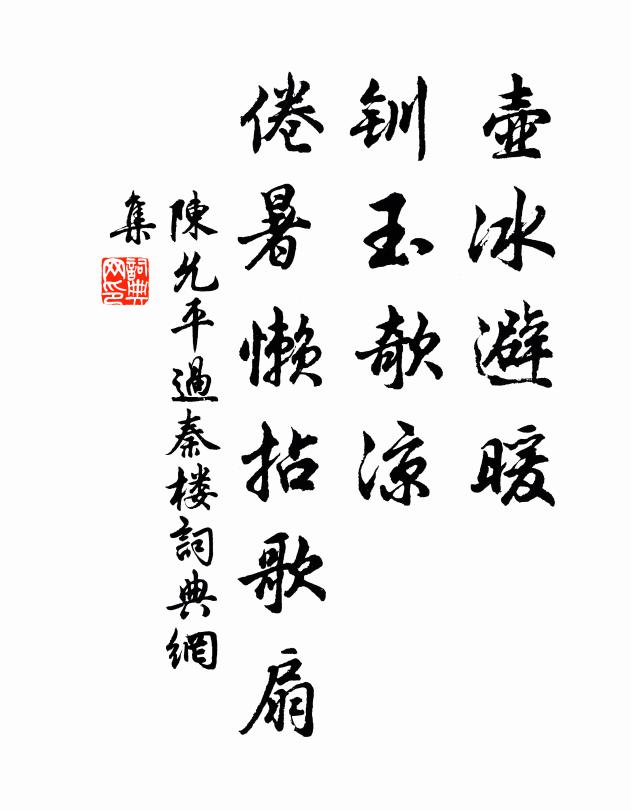 壺冰避暖
釧玉敧涼
倦暑懶拈歌扇
陳允平過秦楼詞典網
集
詞典
网印